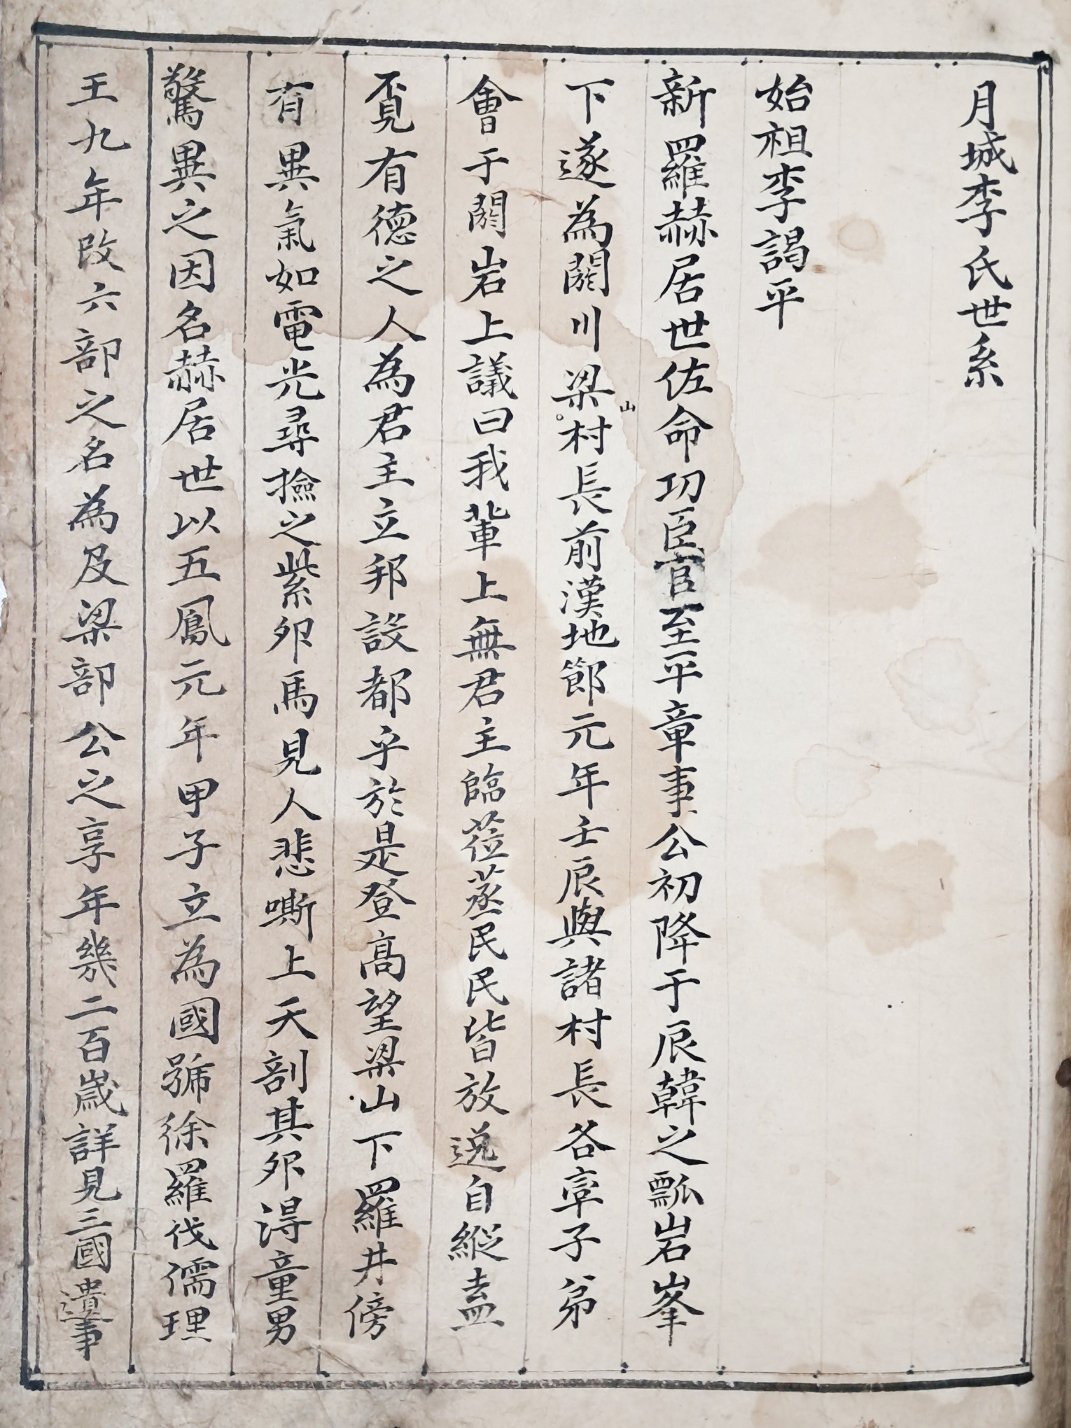 月城李氏世系
始祖李謁平
新羅赫居世佐命功臣官至平章事公初降于辰韓之瓢岩峯
下遂為閼川梁山村長前漢地節元年壬辰與諸村長各率子弟
會于閼岩上議曰我輩上無君主臨莅蒸民民皆放逸自縱盍
覔有德之人為君主立邦設都乎於是登高望梁山下羅井傍
有異氣如電光尋撿之紫卵馬見人悲嘶上天剖其卵得童男
驚異之因名赫居世以五鳳元年甲子立為國號徐羅伐儒理
王九年改六部之名為及梁部公之享年幾二百歲詳見三國遺事